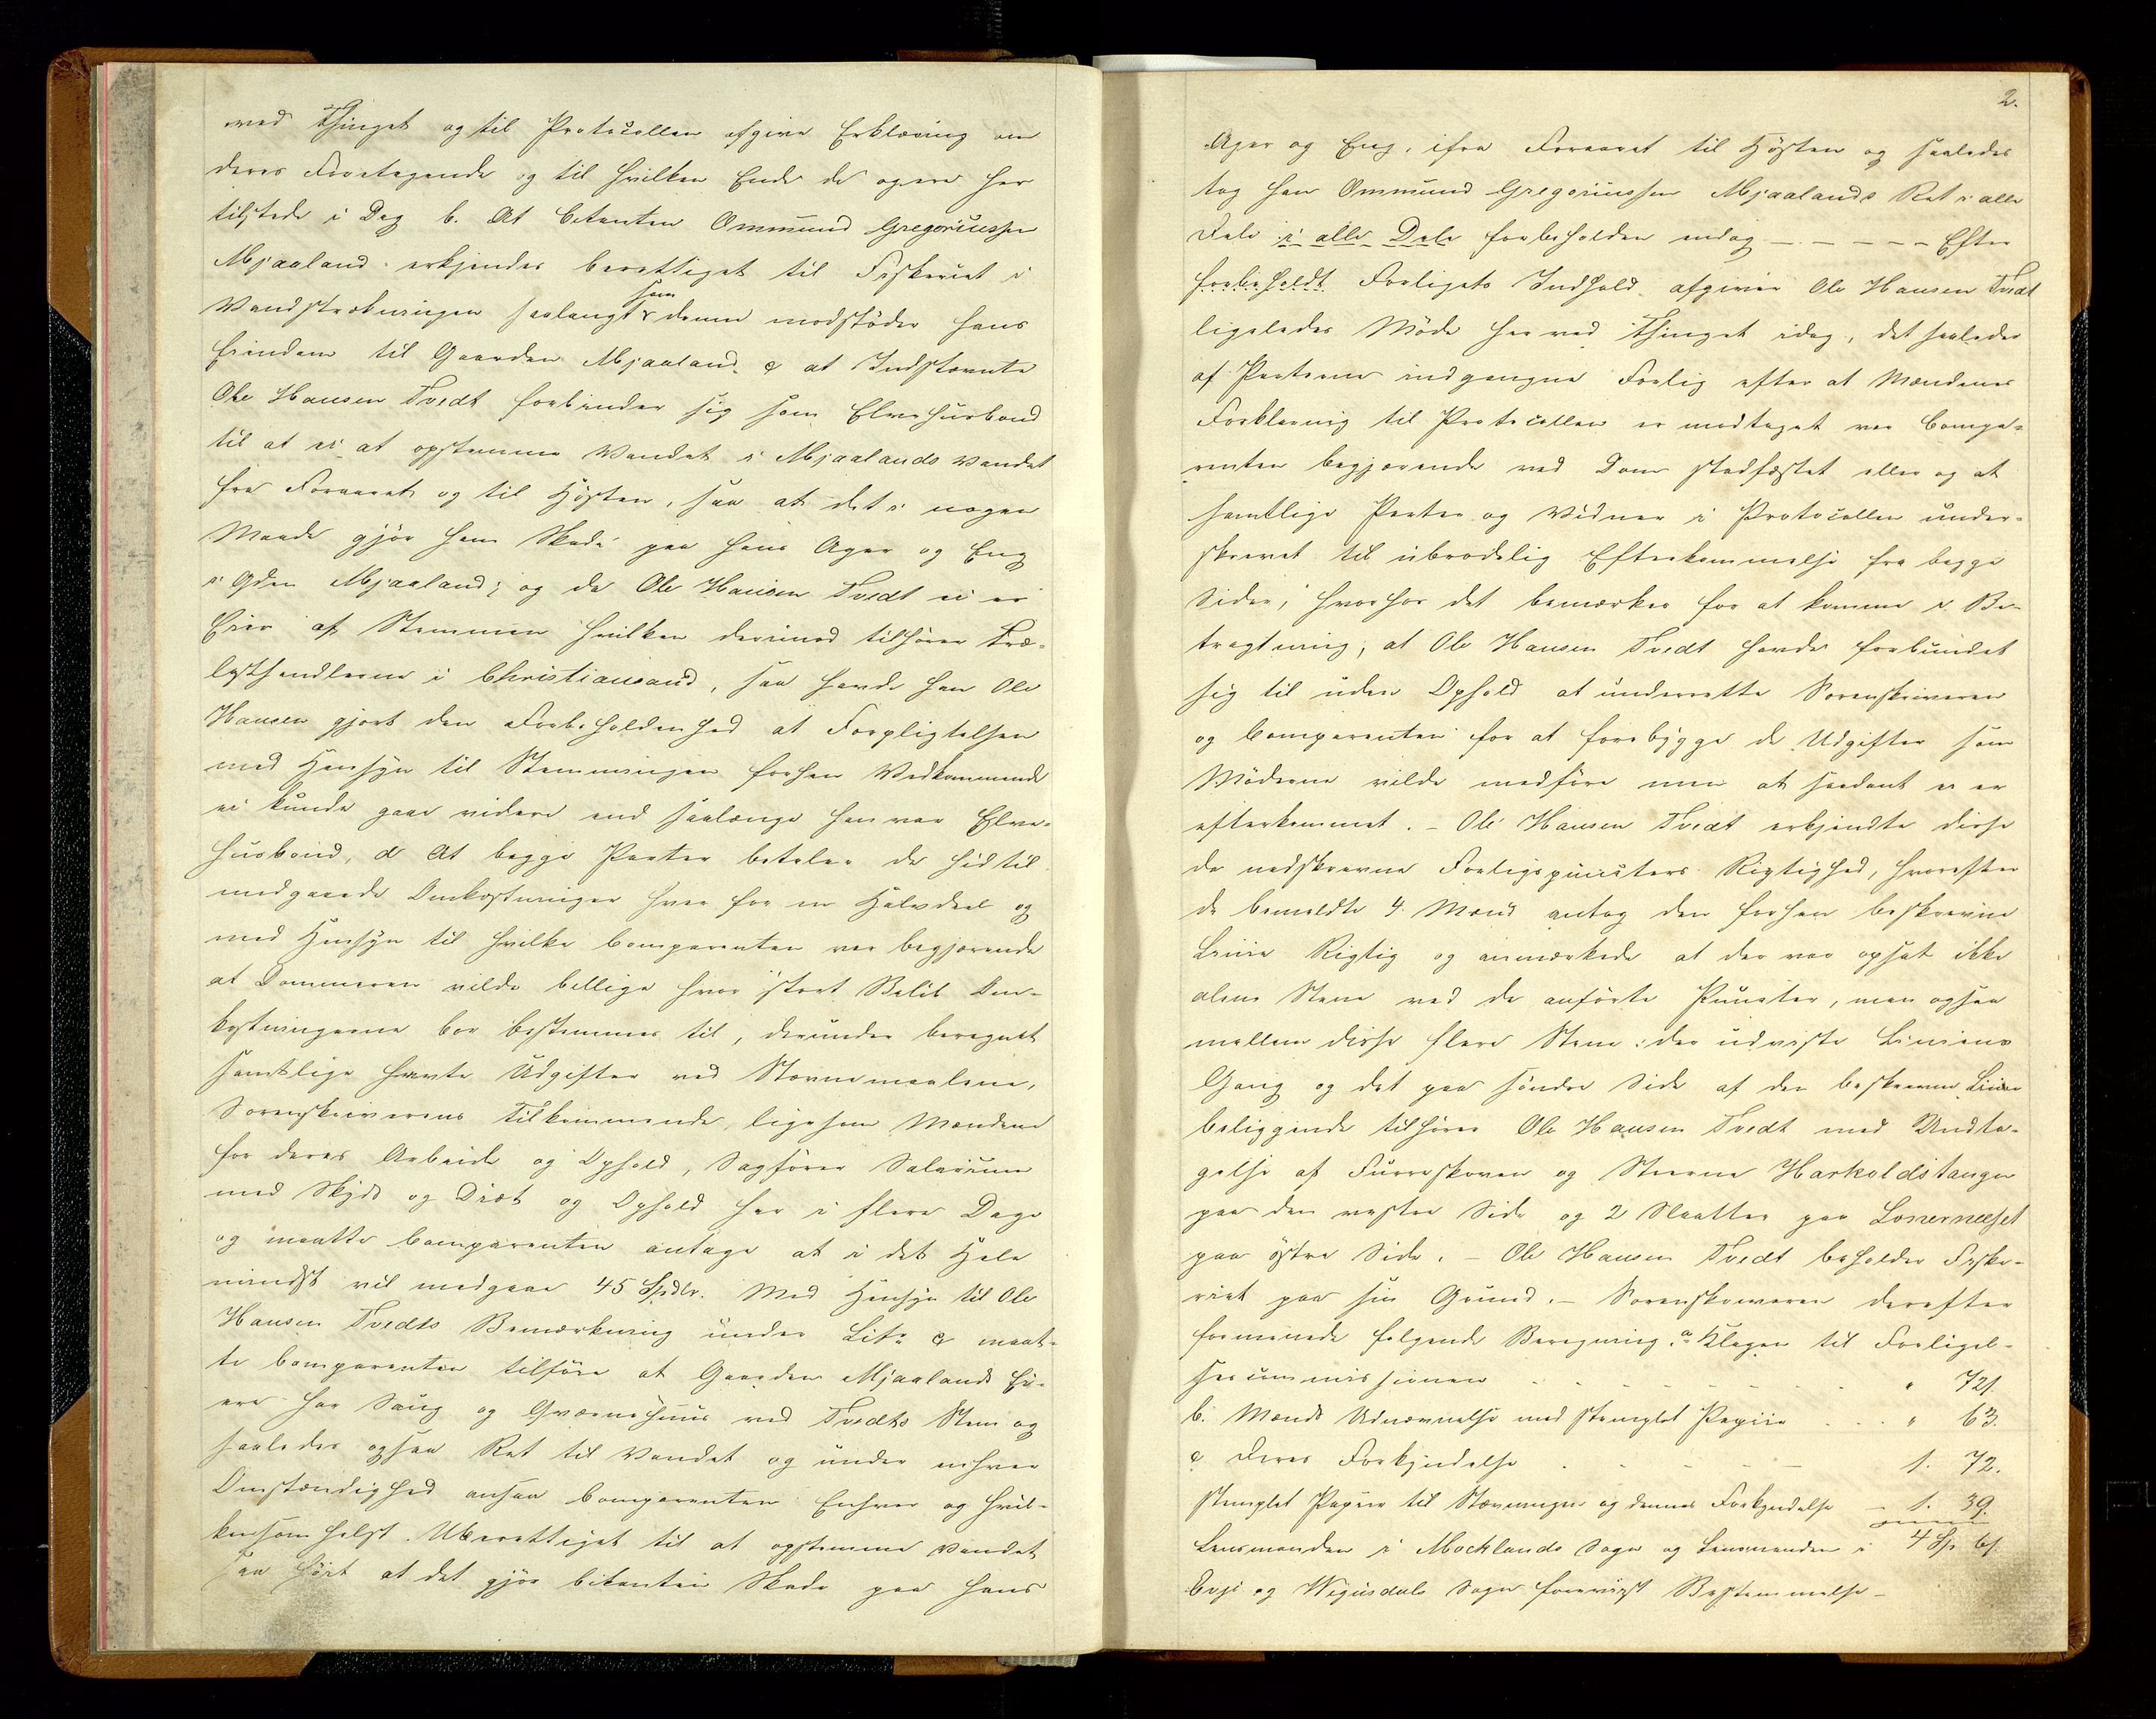 ved Thinget og til Protocollen afgive Erklæring om
deres Foretagende og til hvilken Ende de ogere her
tilstede i Dag b. At Citanten Ommund Gregoriussen
Mjaaland erkjendes berettiget til Fiskeriet i
Vandstrækningen saalangt som denne modstöder hans
Eiendom til Gaarden Mjaaland. c at Indstævnte
Ole Hansen Tvedt forbinder sig som Elvehusbond
til at ei at opstemme Vandet i Mjaalands Vandet
fra Foraaret og til Høsten, saa at det i nogen
Maade gjör ham Skade paa hans Ager og Eng
i Gden Mjaaland; og da Ole Hansen Tvedt ei er
Eier af Stemmen hvilken derimod tilhører Træ-
lasthandlerne i Christiansand, saa havde han Ole
Hansen gjort den Forbeholdenhed at Forpligtelsen
med Hensyn til Stemningen for hans Vedkommende
ei kunde gaae videre end saalænge han var Elve-
husbond, d At begge Parter betaler de hidtil
medgaaede Omkostninger hver for en Halvdeel og
med Hensyn til hvilke Comparenten var begjærende
at Dommeren vilde billige hvor stort Beløb Om-
kostningerne bør bestemmes til, derunder beregnet
samtlige havte Udgifter ved Stævnemaalene,
Sorenskriverens Tilkommende, ligesom Mændene
for deres Arbeide og Ophold, Sagfører Salarium
med Skyds og Diæt og Ophold her i flere Dage
og maatte Comparenten antage at i det Hele
mindst vil medgaae 45 Spdlr. Med Hensyn til Ole
Hansen Tvedts Bemærkning under Litr c maat-
te Comparenten tilføre at Gaarden Mjaalands Ei-
ere har Saug og Qværnehuus ved Tvedts Stem og
saaledes ogsaa Ret til Vandet og under enhver
Omstændighed ansaa Comparenten Enhver og hvil-
kensomhelst Uberettiget til at opstemme Vandet
saa høit at det gjör Citanten Skade paa hans
2.
Ager og Eng, ifra Foraaret til Høsten og saaledes
tog han Ommund Gregoriussen Mjaalands Ret i alle
Dele i alle Dele forbeholden endog - - - - - Efter
forbeholdt Forligets Indhold afgiver Ole Hansen Tvedt
ligeledes Möde her ved Thinget idag, det saaledes
af Parterne indgangne Forlig efter at Mændenes
Forklaring til Protocollen er modtaget var Compa-
renten begjærende ved Dom stadfæstet eller og at
samtlige Parter og Vidner i Protocollen under-
skrevet til ubrødelig Efterkommelse fra begge
Sider, hvorhos det bemærkes for at komme i Be-
tragtning, at Ole Hansen Tvedt havde forbundet
sig til uden Ophold at underrette Sorenskriveren
og Comparenten for at forebygge de Udgifter som
Möderne vilde medføre men at saadant ei er
efterkommet. - Ole Hansen Tvedt erkjendte disse
de nedskrevne Forligspuncters Rigtighed, hvorefter
de bemeldte 4 Mænd antog den forhen beskrevne
Linie Rigtig og anmærkede at der var opsat ikke
alene Stene ved de anførte Puncter, men ogsaa
mellem disse flere Stene: der udviste Liniens
Gang og det paa søndre Side af den beskrevne Linie
beliggende tilhører Ole Hansen Tvedt med Undta-
gelse af Furreskoven og Steerne Harkoldstangen
paa den vestre Side og 2 Slaatter paa Lonerneeset
paa østre Side. - Ole Hansen Tvedt beholder Fiske-
riet paa sin Grund. - Sorenskriveren derefter
formenede følgende Beregning. a Klagen til Forligel-
sescommissionen - - - - - " 72 s.
b. Mænds Udnævnelse med stemplet Papiir . . . " 63.
c deres Forkyndelse . - - - - - 1. 72.
stemplet Papiir til Stævningen og dennes Forkyndelse - 1. 39.
Lensmanden i Mocklands Sogn og Lensmanden i 4 Sp 6 s.
Evje og Wegusdals Sogn forevist Bestemmelse -